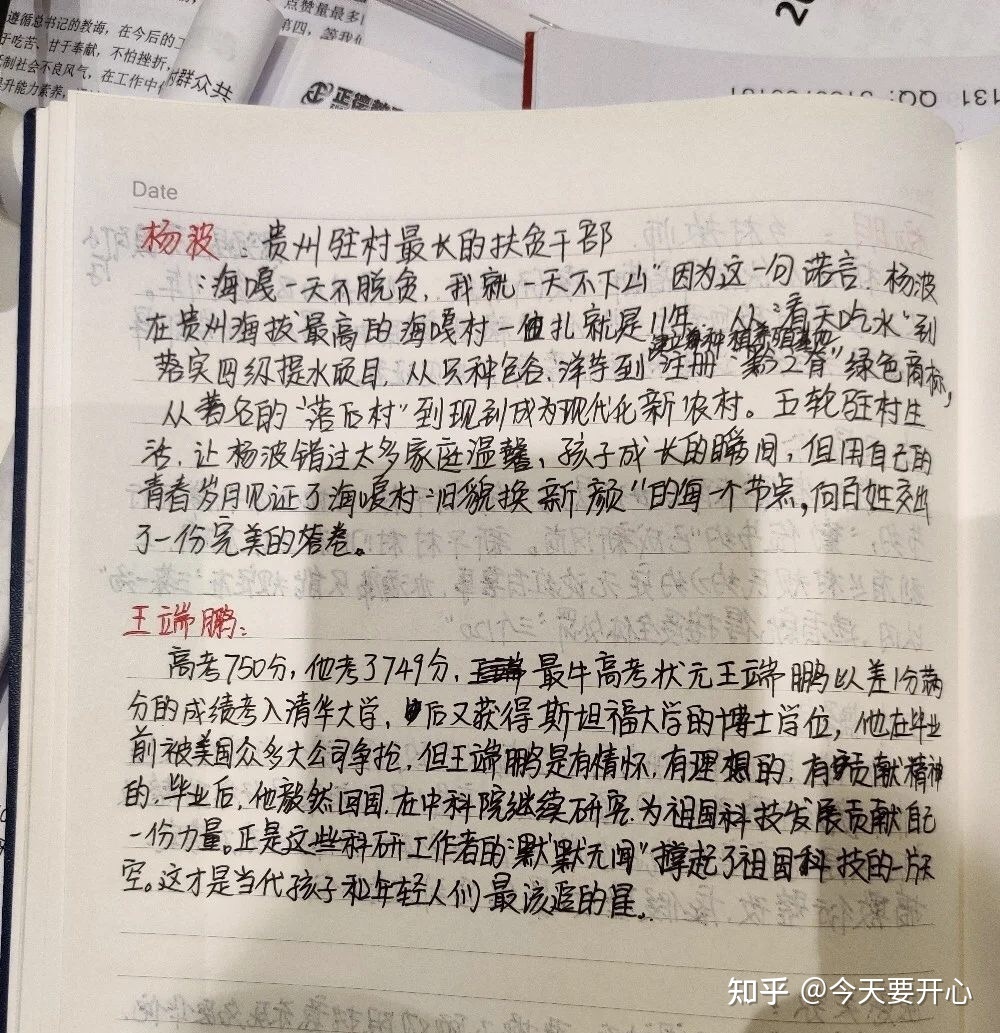 遵循总书记的教诲，在今后的工
于吃苦、甘于奉献，不怕挫折，
制社会不良风气，在工作中
升能力素养，
群众共
点赞量最多
第四，等我们
正德
QQ：
131
20
Date
杨波：贵州驻村最长的扶贫干部
：海嘎一天不脱贫，我就一天不下山"因为这一句诺言，杨波
在贵州海拔最高的海嘎村一住扎就是11年，从"看天吃水"到
建立各种种植养殖基地
落实四级提水项目，从只种包谷、洋芋到"注册"黔之脊"绿色商标，
从著名的"落后村"到现到成为现代化新农村。五轮驻村生
活，让杨波错过太多家庭温馨、孩子成长的瞬间，但用自己的
青春岁月见证了海嘎村"旧貌换新颜"的每一个节点，向百姓交出
了一份完美的答卷。
王端鹏：
高考750分，他考了749分，最牛高考状元王端鹏以差1分满
分的成绩考入清华大学，后又获得斯坦福大学的博士学位，他在毕业
前被美国众多大公司争抢，但王端鹏是有情怀，有理想的，有贡献精神
的，毕业后，他毅然回国，在中科院继续研究，为祖国科技发展贡献自己
一份力量。正是这些科研工作者的"默默无闻"撑起了祖国科技的一片天
空。这才是当代孩子和年轻人们最该追的星。
知乎 @今天要开心